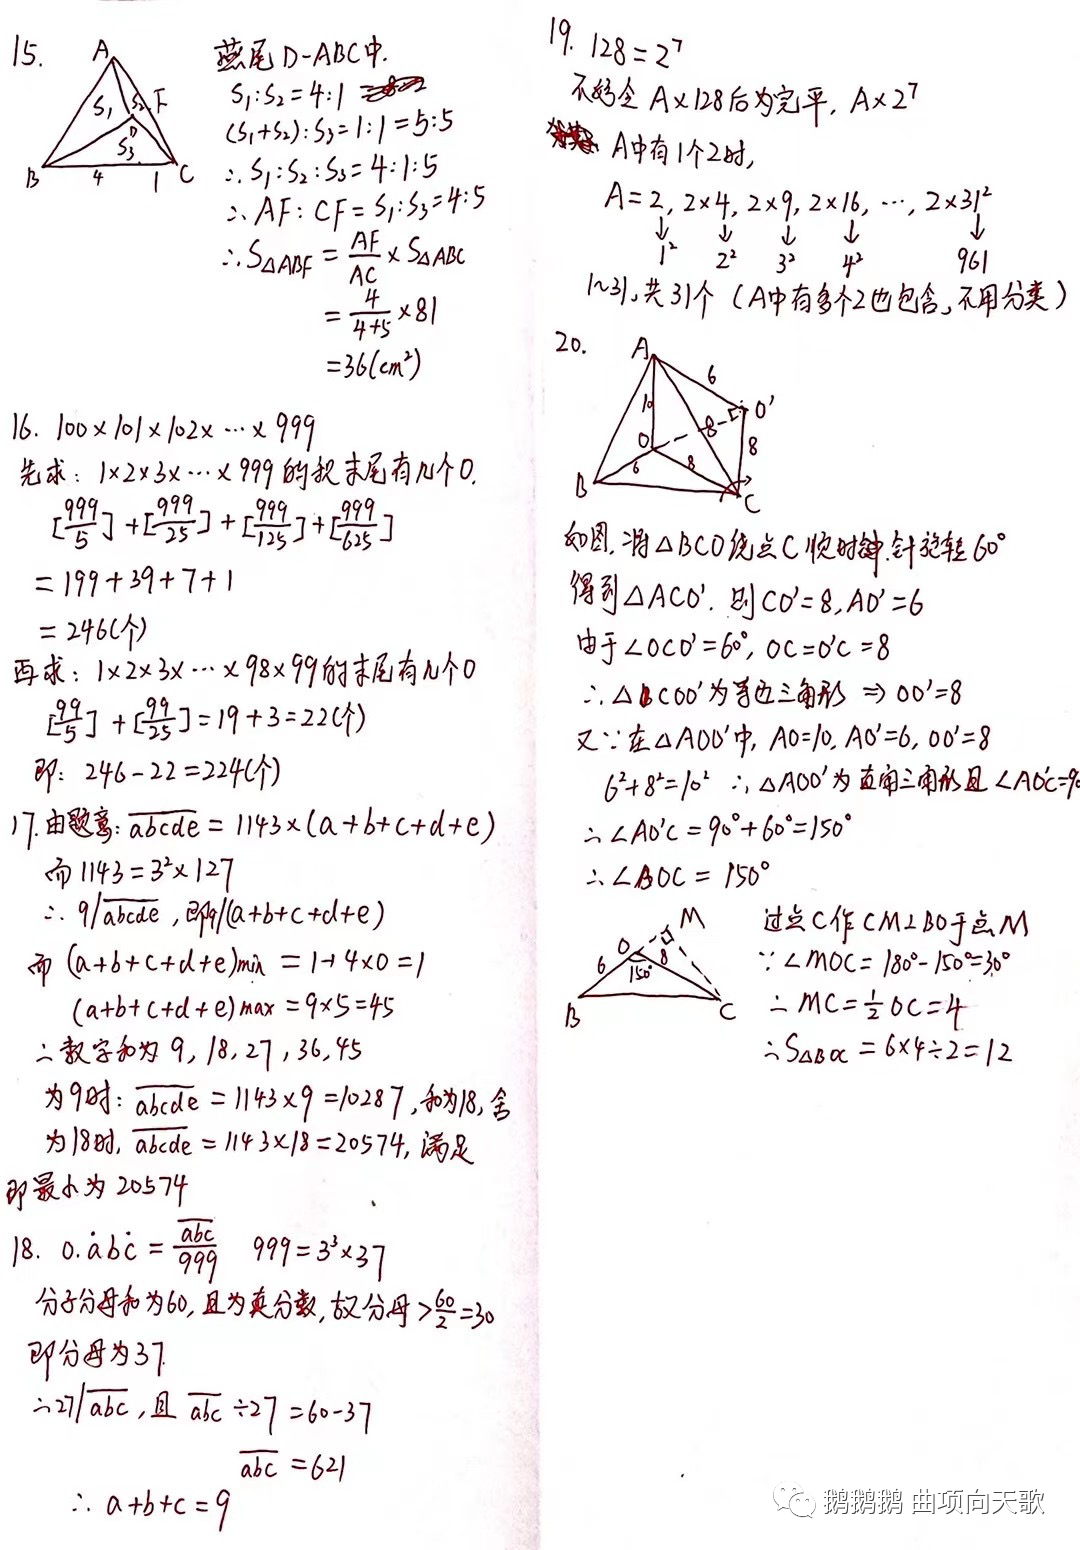 15.
A
S₁
S₂
F
D
S₃
B
4
1
C
燕尾D-ABC中.
S₁:S₂=4:1
(S₁+S₂):S₃=1:1=5:5
∴S₁:S₂:S₃=4:1:5
∴AF:CF=S₁:S₃=4:5
∴S△ABF=AF/AC×S△ABC
=4/(4+5)×81
=36(cm²)
16. 100×101×102×…×999
先求：1×2×3×…×999的积末尾有几个0.
[999/5]+[999/25]+[999/125]+[999/625]
=199+39+7+1
=246(个)
再求：1×2×3×…×98×99的末尾有几个0
[99/5]+[99/25]=19+3=22(个)
即：246-22=224(个)
17.由题意:a̅b̅c̅d̅e̅=1143×(a+b+c+d+e)
而1143=3²×127
∴9/a̅b̅c̅d̅e̅,即9/(a+b+c+d+e)
而(a+b+c+d+e)min=1+4×0=1
(a+b+c+d+e)max=9×5=45
∴数字和为9,18,27,36,45
为9时:a̅b̅c̅d̅e̅=1143×9=10287,和为18,舍
为18时,a̅b̅c̅d̅e̅=1143×18=20574,满足
即最小为20574
18. 0.ȧbċ=a̅b̅c̅/999 999=3³×37
分子分母和为60,且为真分数,故分母>60/2=30
即分母为37.
∴27/a̅b̅c̅,且a̅b̅c̅÷27=60-37
a̅b̅c̅=621
∴a+b+c=9
19. 128=2⁷
不妨令A×128后为完平,A×2⁷
A中有1个2时,
A=2,2×4,2×9,2×16,…,2×31²
↓ ↓ ↓ ↓ ↓
1² 2² 3² 4² 961
1~31,共31个(A中有多个2也包含,不用分类)
20.
A
6
10
O'
O
8
8
6
8
B
C
如图,将△BCO绕点C顺时针旋转60°
得到△ACO'.则CO'=8,AO'=6
由于∠OCO'=60°,OC=O'C=8
∴△COO'为等边三角形⇒OO'=8
又∵在△AOO'中,AO=10,AO'=6,OO'=8
6²+8²=10² ∴△AOO'为直角三角形且∠AO'C=90
∴∠AO'C=90°+60°=150°
∴∠BOC=150°
M
O
6
8
150°
B
C
过点C作CM⊥BO于点M
∵∠MOC=180°-150°=30°
∴MC=1/2OC=4
∴S△BOC=6×4÷2=12
鹅鹅鹅 曲项向天歌